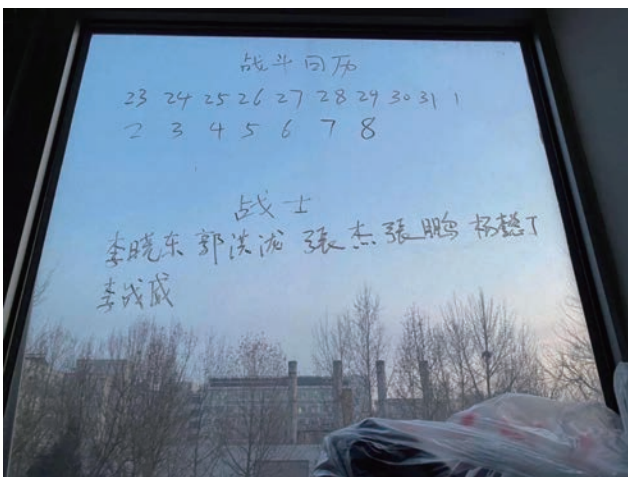 战斗日历
23 24 25 26 27 28 29 30 31 1
2 3 4 5 6 7 8
战士
李晓东 郭洪泷 張杰 張鹏 杨懿丁
李成威